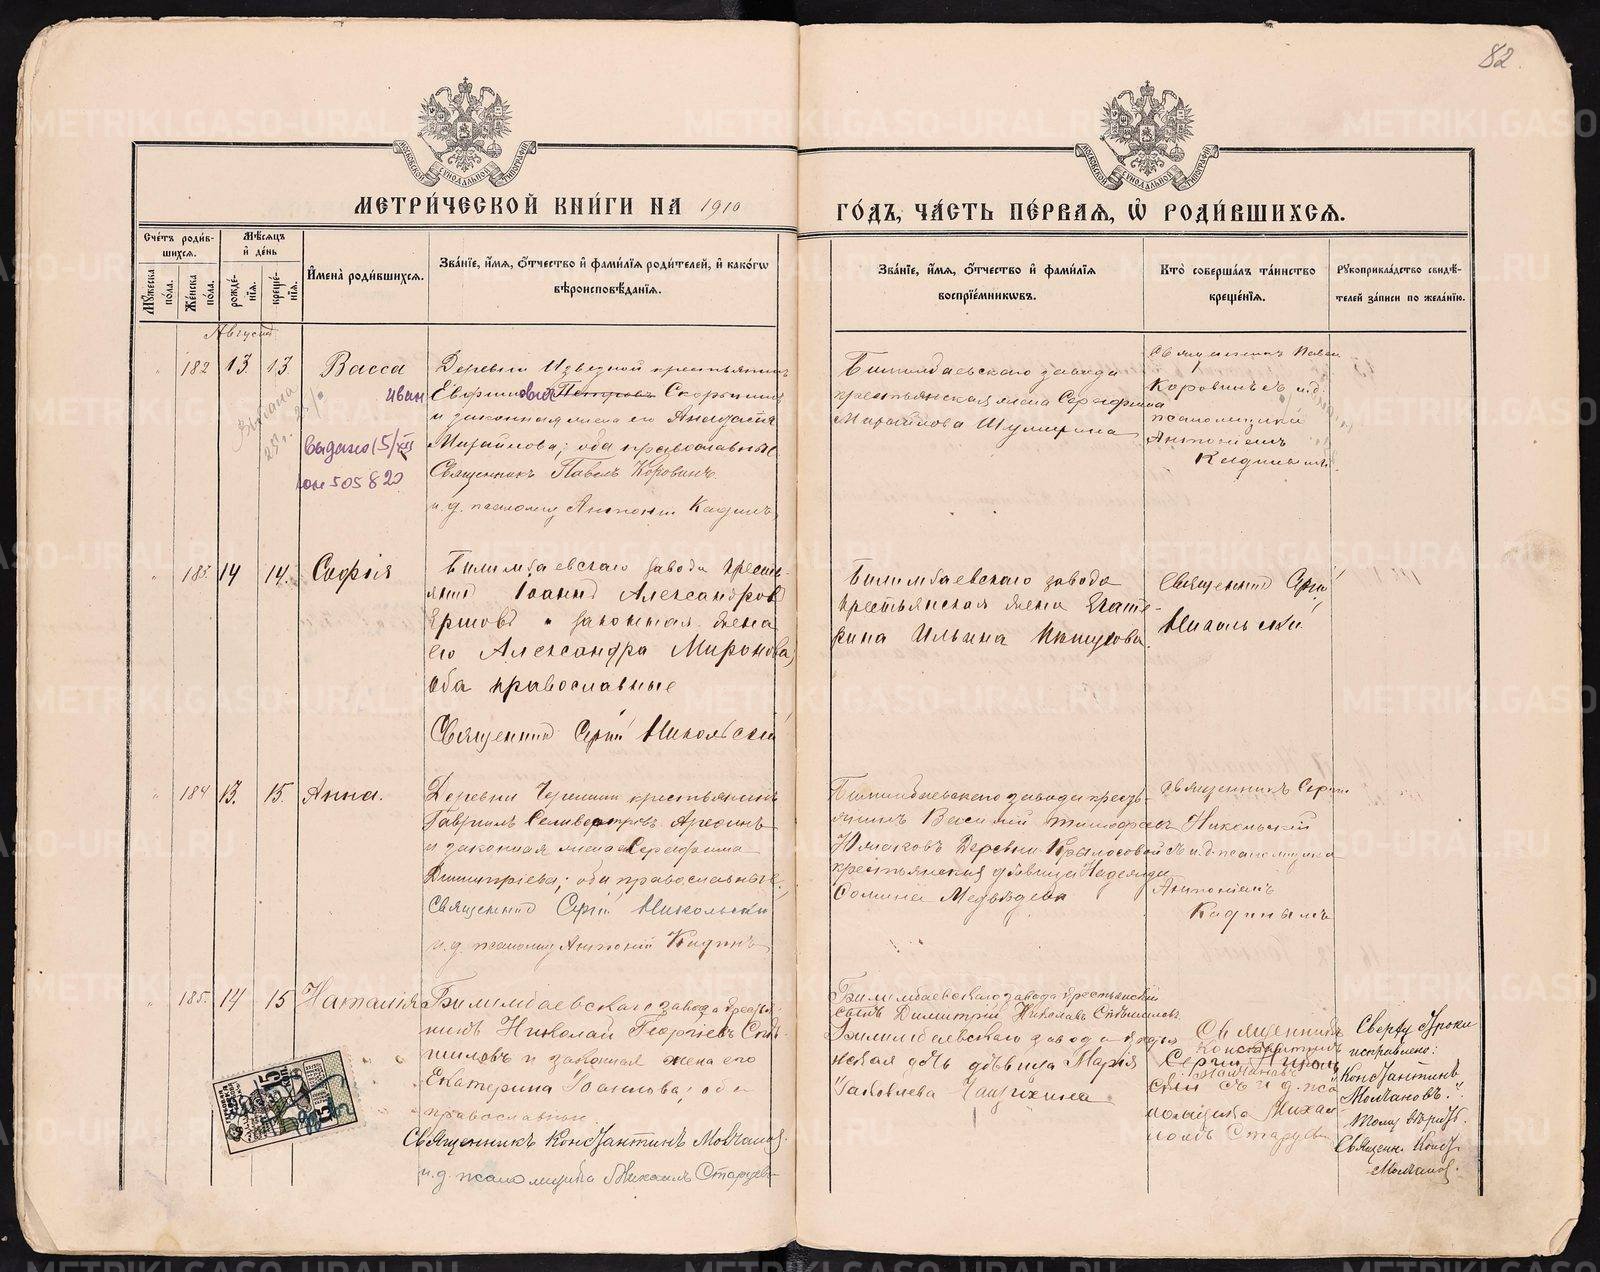 82
МЕТРИ́ЧЕСКОЙ КНИ́ГИ НА 1910
ГО́ДЪ, ЧА́СТЬ ПЕ́РВАЯ, Ѡ҆ РОДИ́ВШИХСЯ.
МОСКОВСКОЙ СѴНОДАЛЬНОЙ ТИПОГРАФІИ
МОСКОВСКОЙ СѴНОДАЛЬНОЙ ТИПОГРАФІИ
Сче́тъ роди́в-
шихся.
Мꙋ́жеска
по́ла.
Же́нска
по́ла.
Мѣ́сяцъ
и҆ де́нь
рожде́-
нїя.
креще́-
нїя.
И҆мена̀ роди́вшихся.
Зва́нїе, и҆́мя, ѻ҆́тчество и҆ фами́лїя роди́телей, и҆ како́гѡ
вѣроисповѣ́данїя.
Зва́нїе, и҆́мя, ѻ҆́тчество и҆ фами́лїя
воспрїе́мникѡвъ.
Кто̀ соверша́лъ та́инство
креще́нїя.
Рꙋкоприкла́дство свидѣ́-
телей за́писи по жела́нїю.
Августъ
182 13 13 Васса
Деревни Извездной крестьянинъ
Иван
Евфимович Петровъ Скорынинъ
и законная жена его Анастасія
Михайлова; оба православные
Священникъ Павелъ Коровинъ
и.д. псаломщ Антоній Кадинъ
выдано 15/XII
505820
Билимбаевскаго завода
крестьянская жена Серафима
Михайлова Шумирина
Священникъ Павелъ
Коровинъ съ и.д.
псаломщика
Антоніемъ
Кадинымъ
183. 14 14. Софія
Билимбаевскаго завода кресть-
янинъ Іоаннъ Александровъ
Ершовъ и законная жена
его Александра Миронова,
оба православные
Священникъ Сергій Никольскій
Билимбаевскаго завода
крестьянская жена Екате-
рина Ильина
Священникъ Сергій
Никольскій
184 13. 15. Анна.
Деревни Черемши крестьянинъ
Гавріилъ Селиверстровъ Арефинъ
и законная жена Серафима
Димитріева; оба православные.
Священникъ Сергій Никольскій
и.д. псаломщ Антоній Кадинъ
Билимбаевскаго завода кресть-
янинъ Василій Тимофеевъ
Юмаковъ Деревни Крылосовой
крестьянская дѣвица Надежда
Фомина Медвѣдева
Священникъ Сергій
Никольскій
съ и.д. псаломщика
Антоніемъ
Кадинымъ
185. 14 15 Наталія
Билимбаевскаго завода кресть-
нинъ Николай Георгіевъ Спѣ-
шиловъ и законная жена его
Екатерина Іоаннова; оба
православные
Священникъ Константинъ Молчановъ.
и.д. псаломщика Михаилъ Старцевъ
15 15
Билимбаевскаго завода крестьянскій
сынъ Димитрій Николаевъ Спѣшиловъ
Билимбаевскаго завода
дѣвица Марія
Іаковлева
Священникъ
Константинъ
Сергій Николь-
Молчановъ
скій съ и.д. пса-
ломщика Михаи-
ломъ Старцев
Сверху строки
исправлено:
„Константинъ
Молчановъ."
Тому вѣрить.
Священн. Конст.
Молчановъ.
METRIKI.GASO-URAL.RU